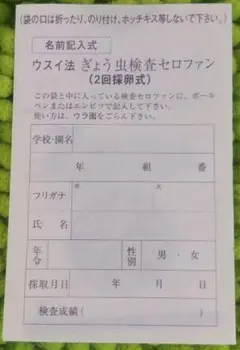 (袋の口は折ったり、のり付け、ホッチキス等しないで下さい。)
名前記入式
ウスイ法 ぎょう虫検査セロファン
(2回採卵式)
この袋と中に入っている検査セロファンに、ボール
ペンまたはエンピツで記入して下さい。
使い方は、ウラ面をごらん下さい。
学校・園名
年 組 番
フリガナ
氏 名
年令 性別 男・女
採取月日 年 月 日
検査成績( )